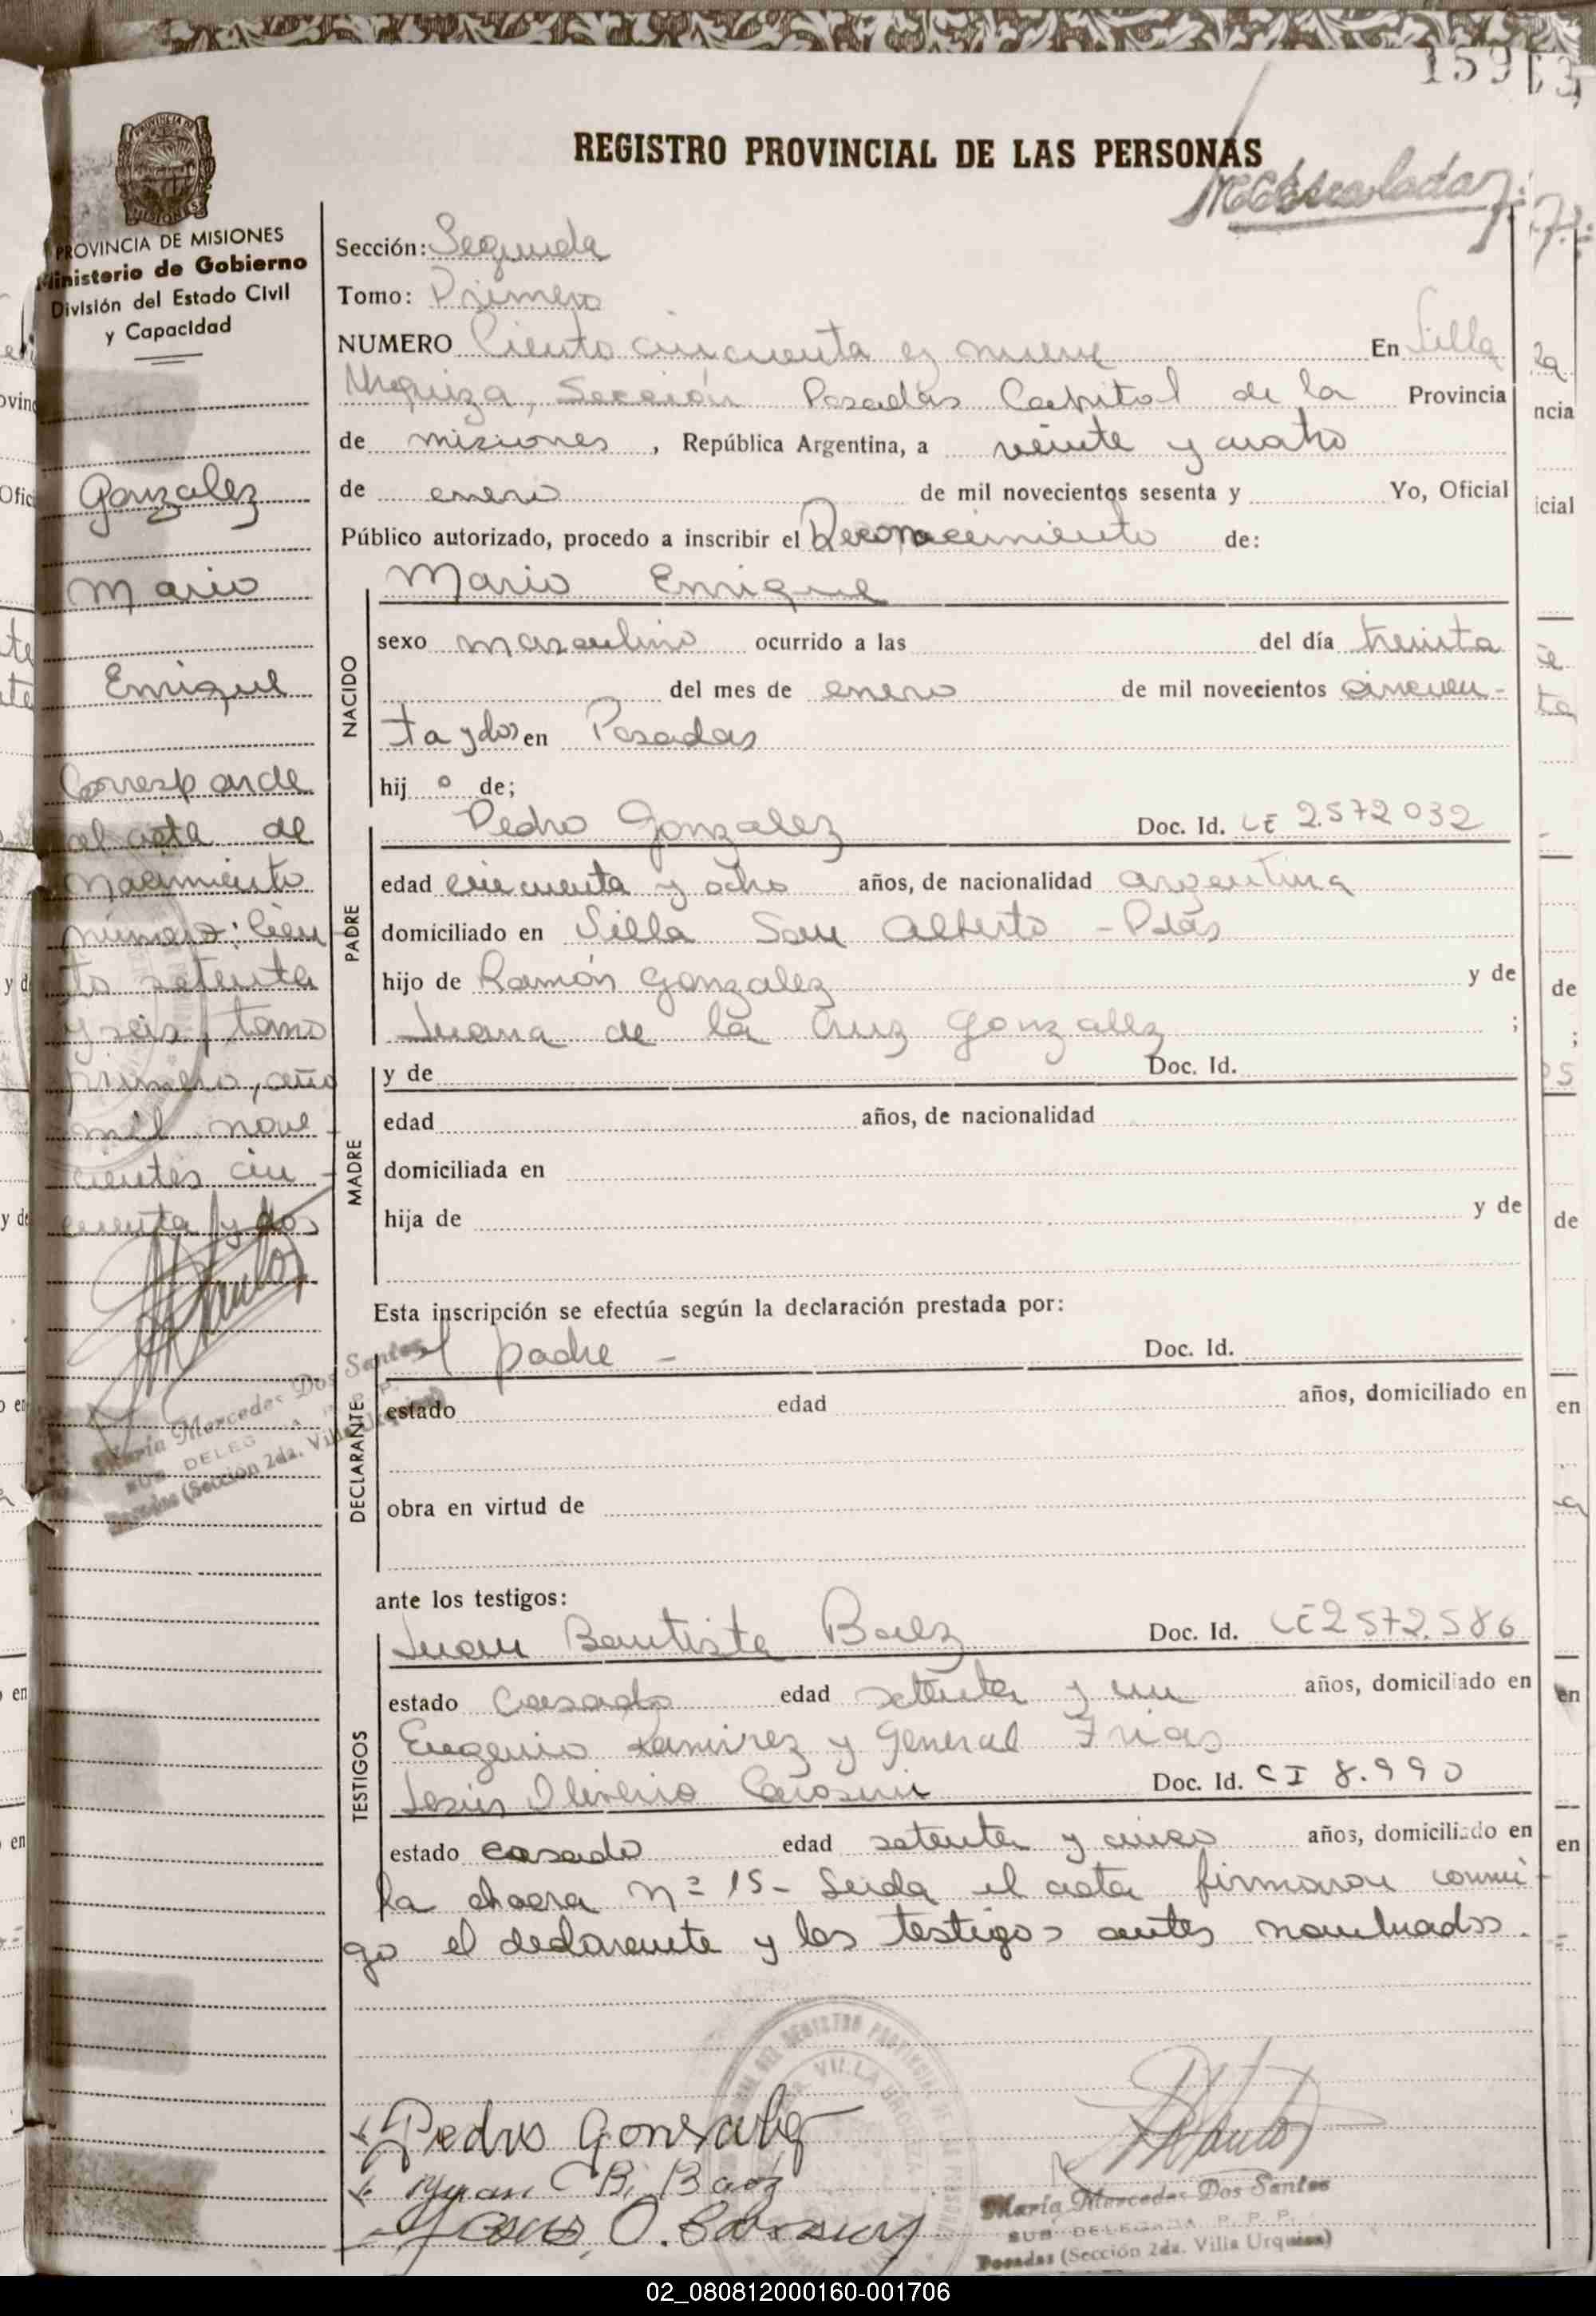 159
REGISTRO PROVINCIAL DE LAS PERSONAS
PROVINCIA DE MISIONES
Ministerio de Gobierno
División del Estado Civil
y Capacidad
Gonzalez
Mario
Enrique
Corresponde
al acta de
nacimiento
número: cien
to setenta
y seis, tomo
primero, año
mil nove
cientos cin-
cuenta y dos
María Mercedes Dos Santos
SUB DELEGADA R. P. P.
Posadas (Sección 2da. Villa Urquiza)
Sección: Segunda
Tomo: Primero
NUMERO Ciento cincuenta y nueve En Villa
Urquiza, Sección Posadas Capital de la Provincia
de misiones, República Argentina, a veinte y cuatro
de enero de mil novecientos sesenta y Yo, Oficial
Público autorizado, procedo a inscribir el Reconocimiento de:
NACIDO
Mario Enrique
sexo masculino ocurrido a las del día treinta
del mes de enero de mil novecientos cincuen-
ta y dos en Posadas
hij o de;
PADRE
Pedro Gonzalez Doc. Id. LE 2.572032
edad cincuenta y ocho años, de nacionalidad argentina
domiciliado en Villa San Alberto - Pdas
hijo de Ramón Gonzalez y de
Juana de la Cruz Gonzalez ;
MADRE
y de Doc. Id.
edad años, de nacionalidad
domiciliada en
hija de y de
Esta inscripción se efectúa según la declaración prestada por:
DECLARANTE
el padre - Doc. Id.
estado edad años, domiciliado en
obra en virtud de
ante los testigos:
TESTIGOS
Juan Bautista Baez Doc. Id. LE 2572.586
estado casado edad setenta y un años, domiciliado en
Eugenio Ramirez y General Frias
Jesús Doc. Id. CI 8.990
estado casado edad setenta y cinco años, domiciliado en
la chacra nº 15- Leida el acta firmaron conmi-
go el declarante y los testigos antes nombrados.
Pedro Gonzalez
Juan B. Baez
Jesus O.
María Mercedes Dos Santos
SUB DELEGADA R. P. P.
Posadas (Sección 2da. Villa Urquiza)
02_080812000160-001706